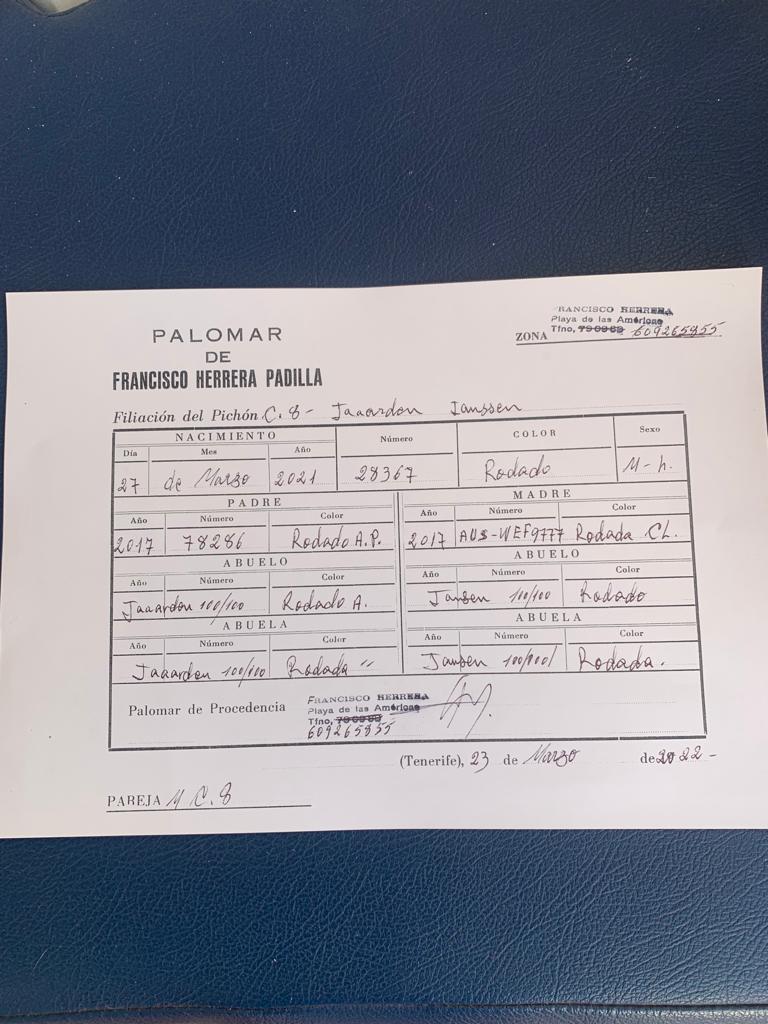 PALOMAR
DE
FRANCISCO HERRERA PADILLA
FRANCISCO HERRERA
Playa de las Américas
ZONA Tfno, 609265855
Filiación del Pichón C. 8 - Jaaardon Janssen
NACIMIENTO Número COLOR Sexo
Día Mes Año
27 de Marzo 2021 28367 Rodado M-h.
PADRE MADRE
Año Número Color Año Número Color
2017 78286 Rodado A.P. 2017 AUS-WEF9777 Rodada CL.
ABUELO ABUELO
Año Número Color Año Número Color
Jaaardon 100/100 Rodado A. Jansen 100/100 Rodado
ABUELA ABUELA
Año Número Color Año Número Color
Jaaardon 100/100 Rodada " Jansen 100/100 Rodada.
Palomar de Procedencia
FRANCISCO HERRERA
Playa de las Américas
Tfno,
609265855
(Tenerife), 23 de Marzo de 2022-
PAREJA M C. 8